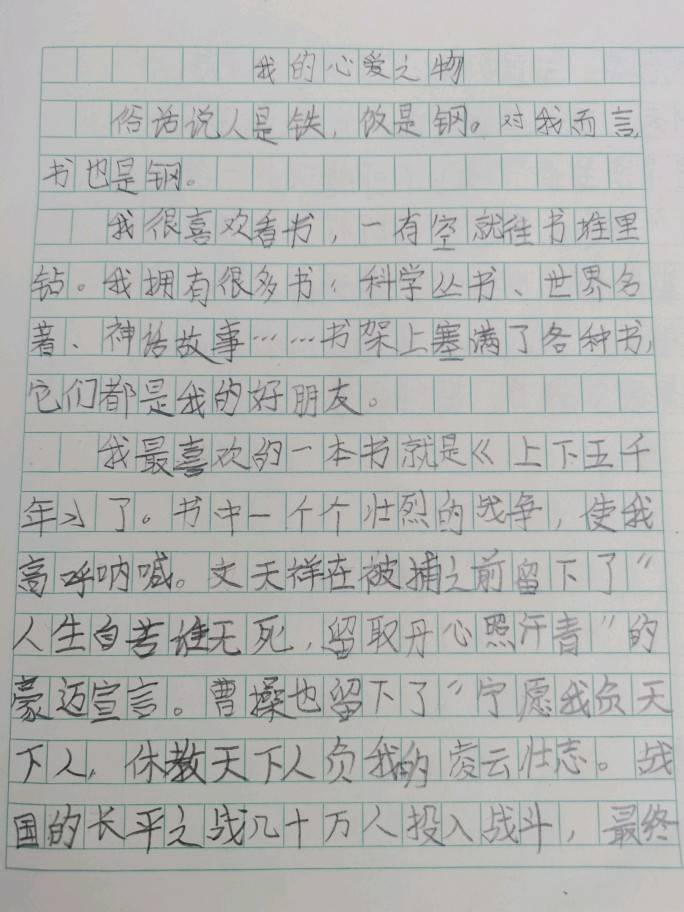 我的心爱之物
俗话说人是铁，饭是钢。对我而言
书也是钢。
我很喜欢看书，一有空就往书堆里
钻。我拥有很多书：科学丛书、世界名
著、神话故事……书架上塞满了各种书，
它们都是我的好朋友。
我最喜欢的一本书就是《上下五千
年》了。书中一个个壮烈的战争，使我
高呼呐喊。文天祥在被捕之前留下了"
人生自苦谁无死，留取丹心照汗青"的
豪迈宣言。曹操也留下了"宁愿我负天
下人，休教天下人负我的凌云壮志。战
国的长平之战几十万人投入战斗，最终